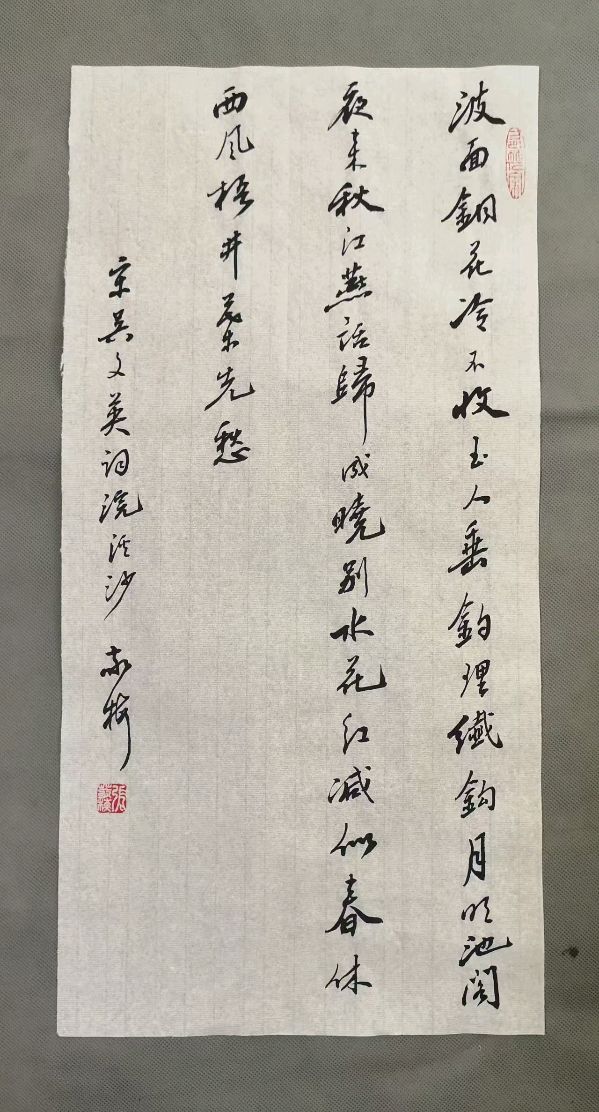 波面銅花冷不收玉人垂釣理纖鈎月明池閣
夜来秋江燕話歸成曉别水花红減似春休
西风梧井葉先愁
宋吴文英词浣溪沙